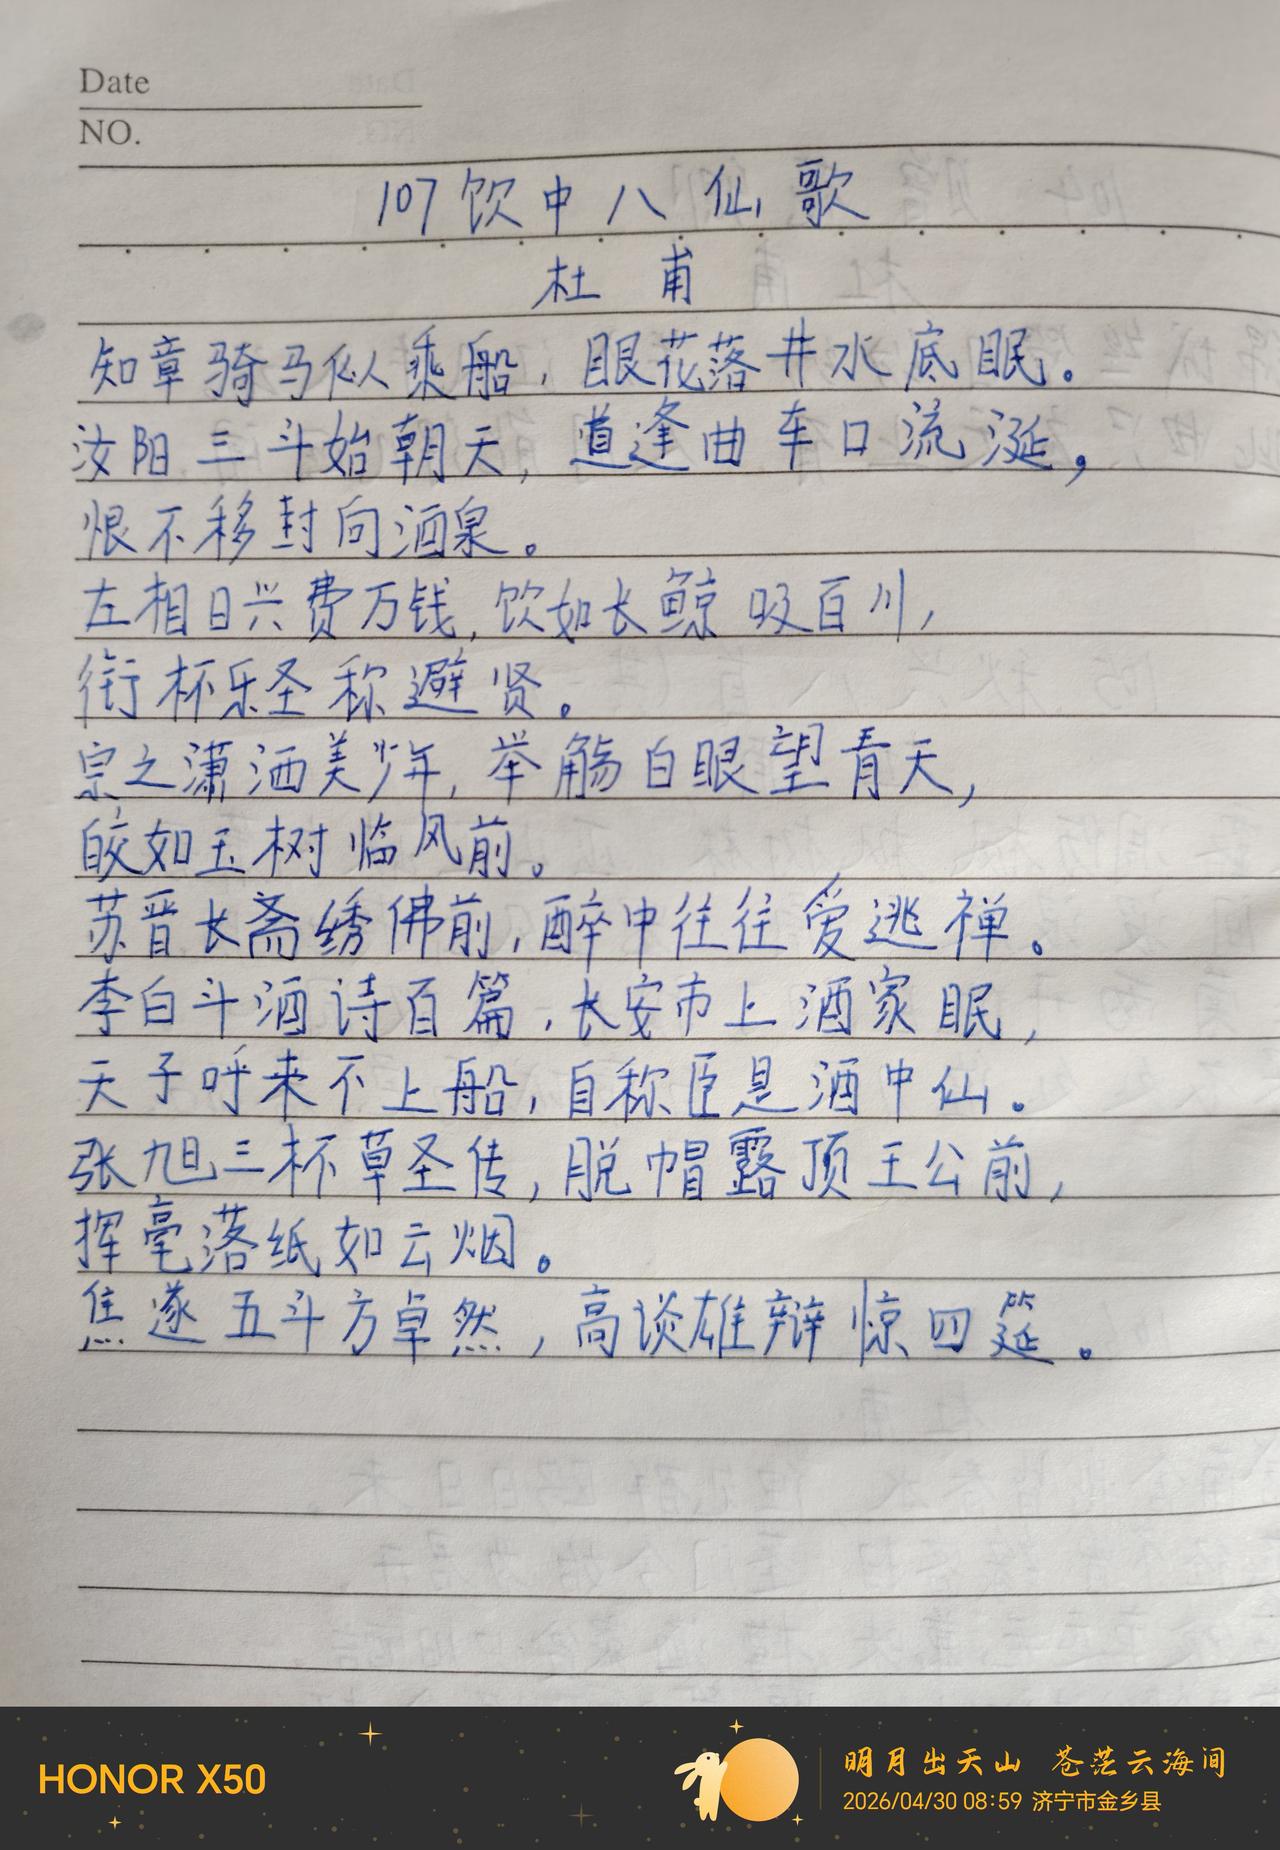 Date
NO.
107饮中八仙歌
杜甫
知章骑马似乘船,眼花落井水底眠。
汝阳三斗始朝天,道逢曲车口流涎,
恨不移封向酒泉。
左相日兴费万钱,饮如长鲸吸百川,
衔杯乐圣称避贤。
宗之潇洒美少年,举觞白眼望青天,
皎如玉树临风前。
苏晋长斋绣佛前,醉中往往爱逃禅。
李白斗酒诗百篇,长安市上酒家眠,
天子呼来不上船,自称臣是酒中仙。
张旭三杯草圣传,脱帽露顶王公前,
挥毫落纸如云烟。
焦遂五斗方卓然,高谈雄辩惊四筵。
HONOR X50
明月出天山 苍茫云海间
2026/04/30 08:59 济宁市金乡县